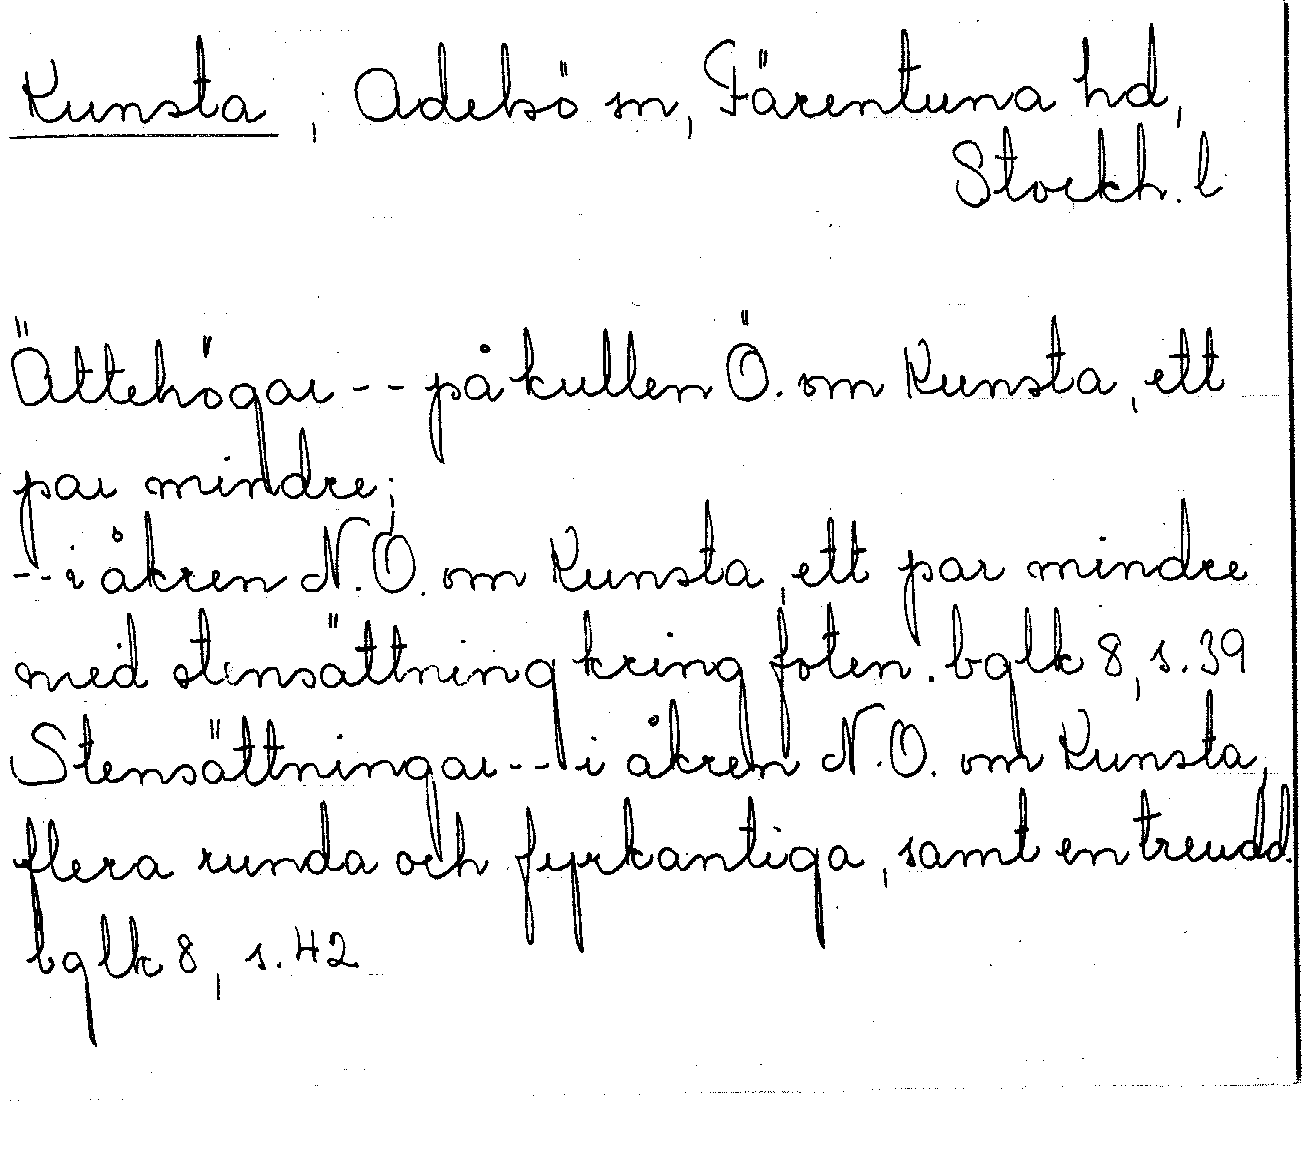 Kunsta, Adelsö sn, Färentuna hd,
Stockh. l
Ättehögar -- på kullen Ö. om Kunsta, ett
par mindre;
-- i åkren N.O. om Kunsta, ett par mindre
med stensättning kring foten. bglk 8, s. 39
Stensättningar -- i åkren N.O. om Kunsta,
flera runda och fyrkantiga, samt en treudd.
bglk 8, s. 42